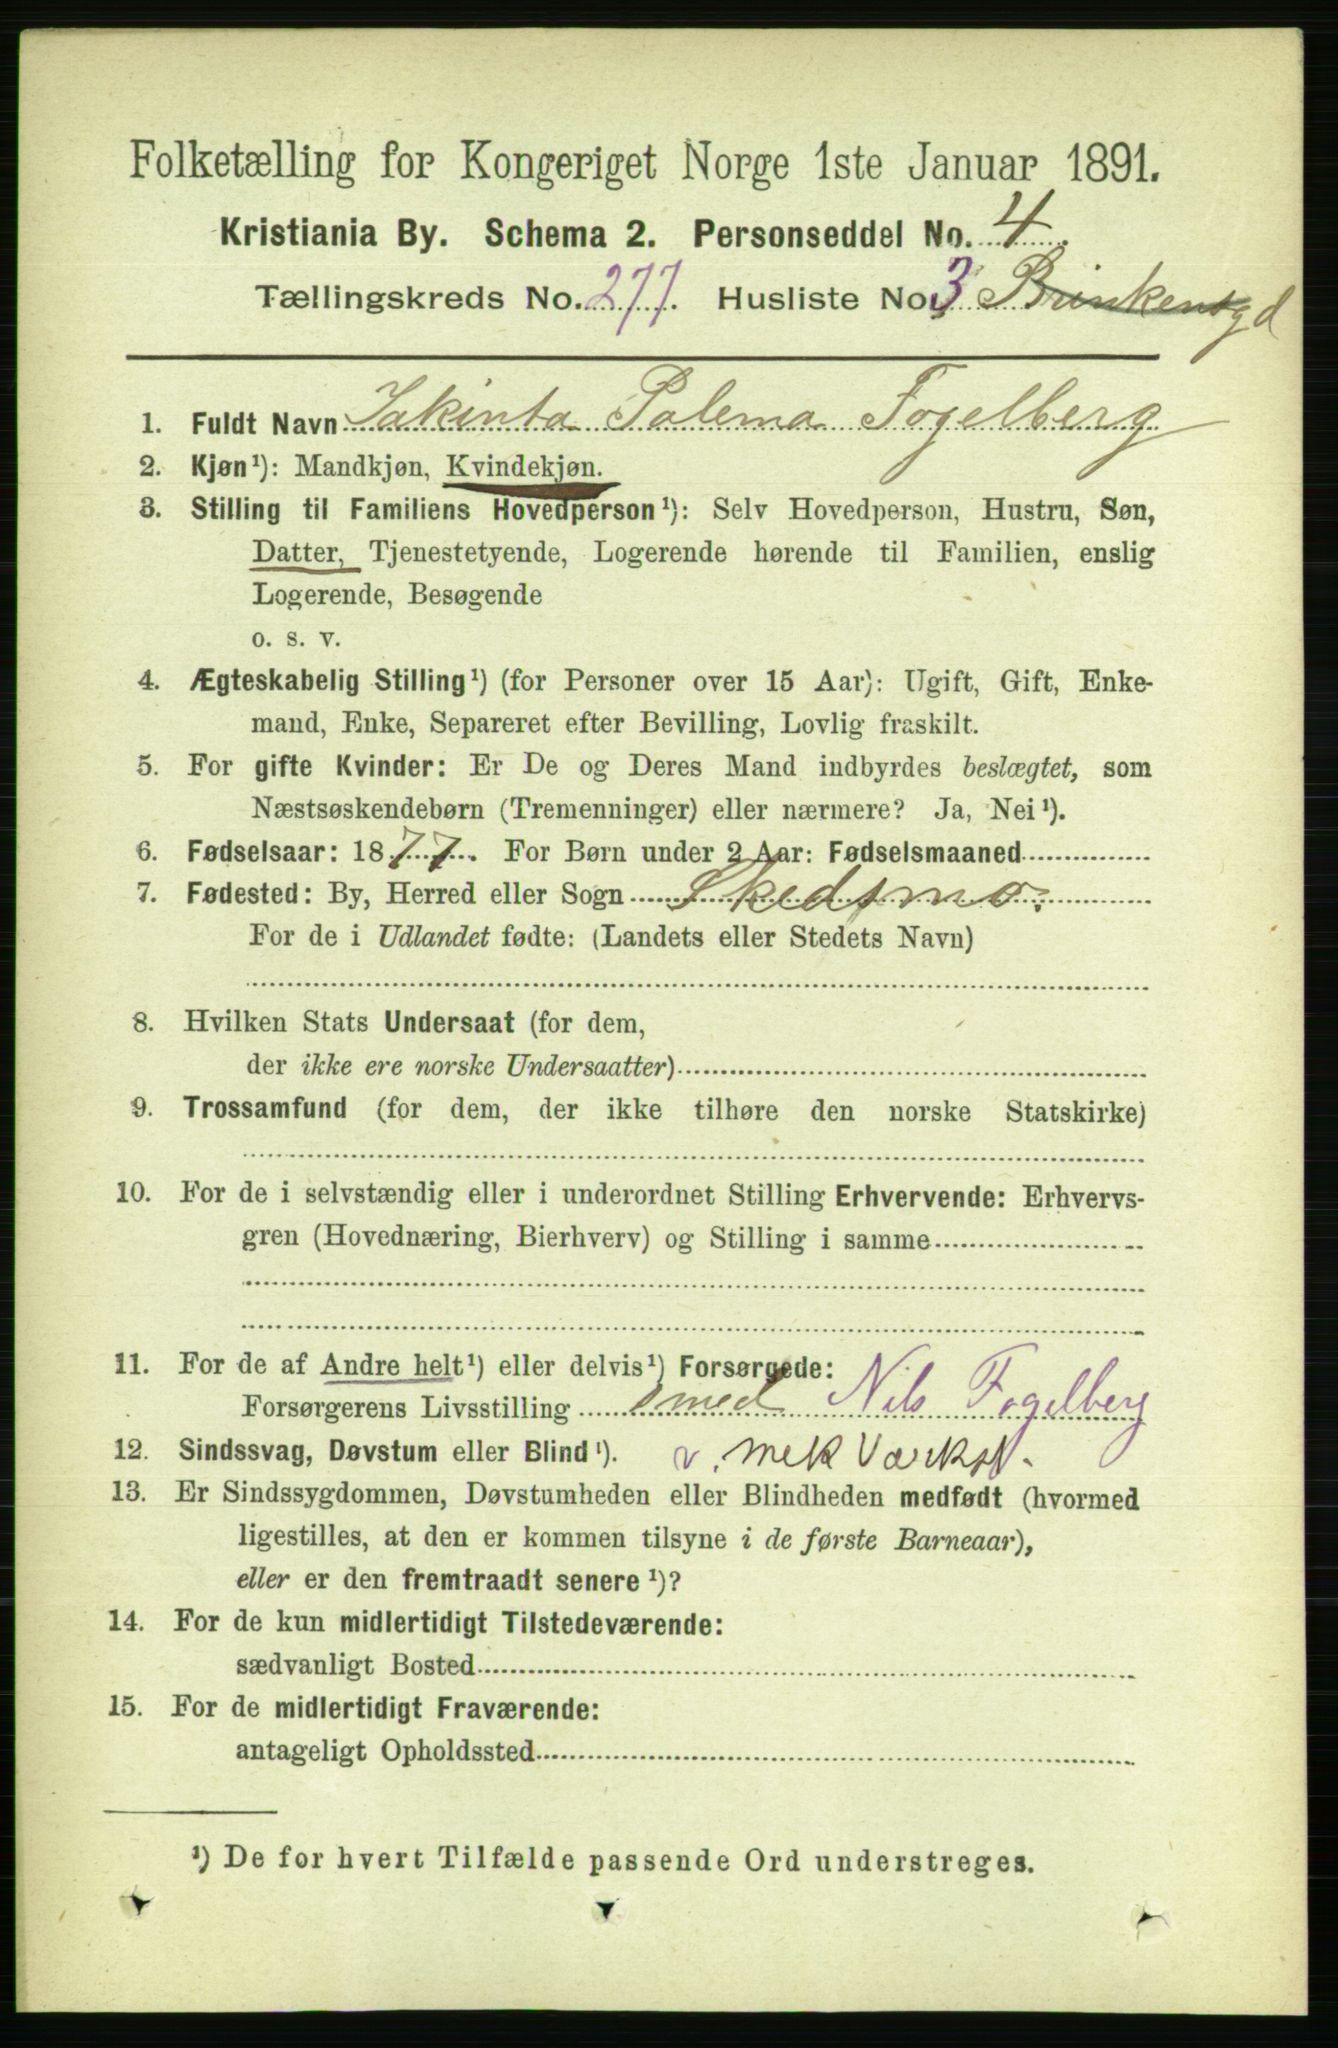 Folketælling for Kongeriget Norge 1ste Januar 1891.
Kristiania By. Schema 2. Personseddel No. 4.
Tællingskreds No. 277. Husliste No. 3
1. Fuldt Navn Jakinta Palema Fogelberg
2. Kjøn¹): Mandkjøn, Kvindekjøn.
3. Stilling til Familiens Hovedperson¹): Selv Hovedperson, Hustru, Søn,
Datter, Tjenestetyende, Logerende hørende til Familien, enslig
Logerende, Besøgende
o. s. v.
4. Ægteskabelig Stilling¹) (for Personer over 15 Aar): Ugift, Gift, Enke-
mand, Enke, Separeret efter Bevilling, Lovlig fraskilt.
5. For gifte Kvinder: Er De og Deres Mand indbyrdes beslægtet, som
Næstsøskendebørn (Tremenninger) eller nærmere? Ja, Nei¹).
6. Fødselsaar: 1877. For Børn under 2 Aar: Fødselsmaaned
7. Fødested: By, Herred eller Sogn Skedsmo.
For de i Udlandet fødte: (Landets eller Stedets Navn)
8. Hvilken Stats Undersaat (for dem,
der ikke ere norske Undersaatter)
9. Trossamfund (for dem, der ikke tilhøre den norske Statskirke)
10. For de i selvstændig eller i underordnet Stilling Erhvervende: Erhvervs-
gren (Hovednæring, Bierhverv) og Stilling i samme
11. For de af Andre helt¹) eller delvis¹) Forsørgede:
Forsørgerens Livsstilling smed Nils Fogelberg
12. Sindssvag, Døvstum eller Blind¹). v. mek Værkst.
13. Er Sindssygdommen, Døvstumheden eller Blindheden medfødt (hvormed
ligestilles, at den er kommen tilsyne i de første Barneaar),
eller er den fremtraadt senere¹)?
14. For de kun midlertidigt Tilstedeværende:
sædvanligt Bosted
15. For de midlertidigt Fraværende:
antageligt Opholdssted
¹) De for hvert Tilfælde passende Ord understreges.